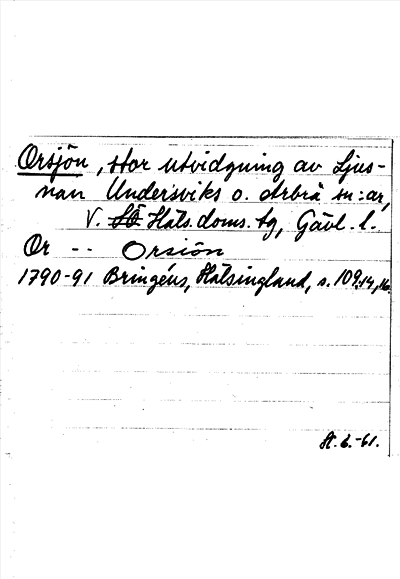 Orsjön, stor utvidgning av Ljus-
nan Undersviks o. Arbrå sn:ar,
V. Häls. doms. tg, Gävl. l.
Or -- Orsiön
1790-91 Bringéus, Hälsingland, s. 109:14,16.
St. B. -61.